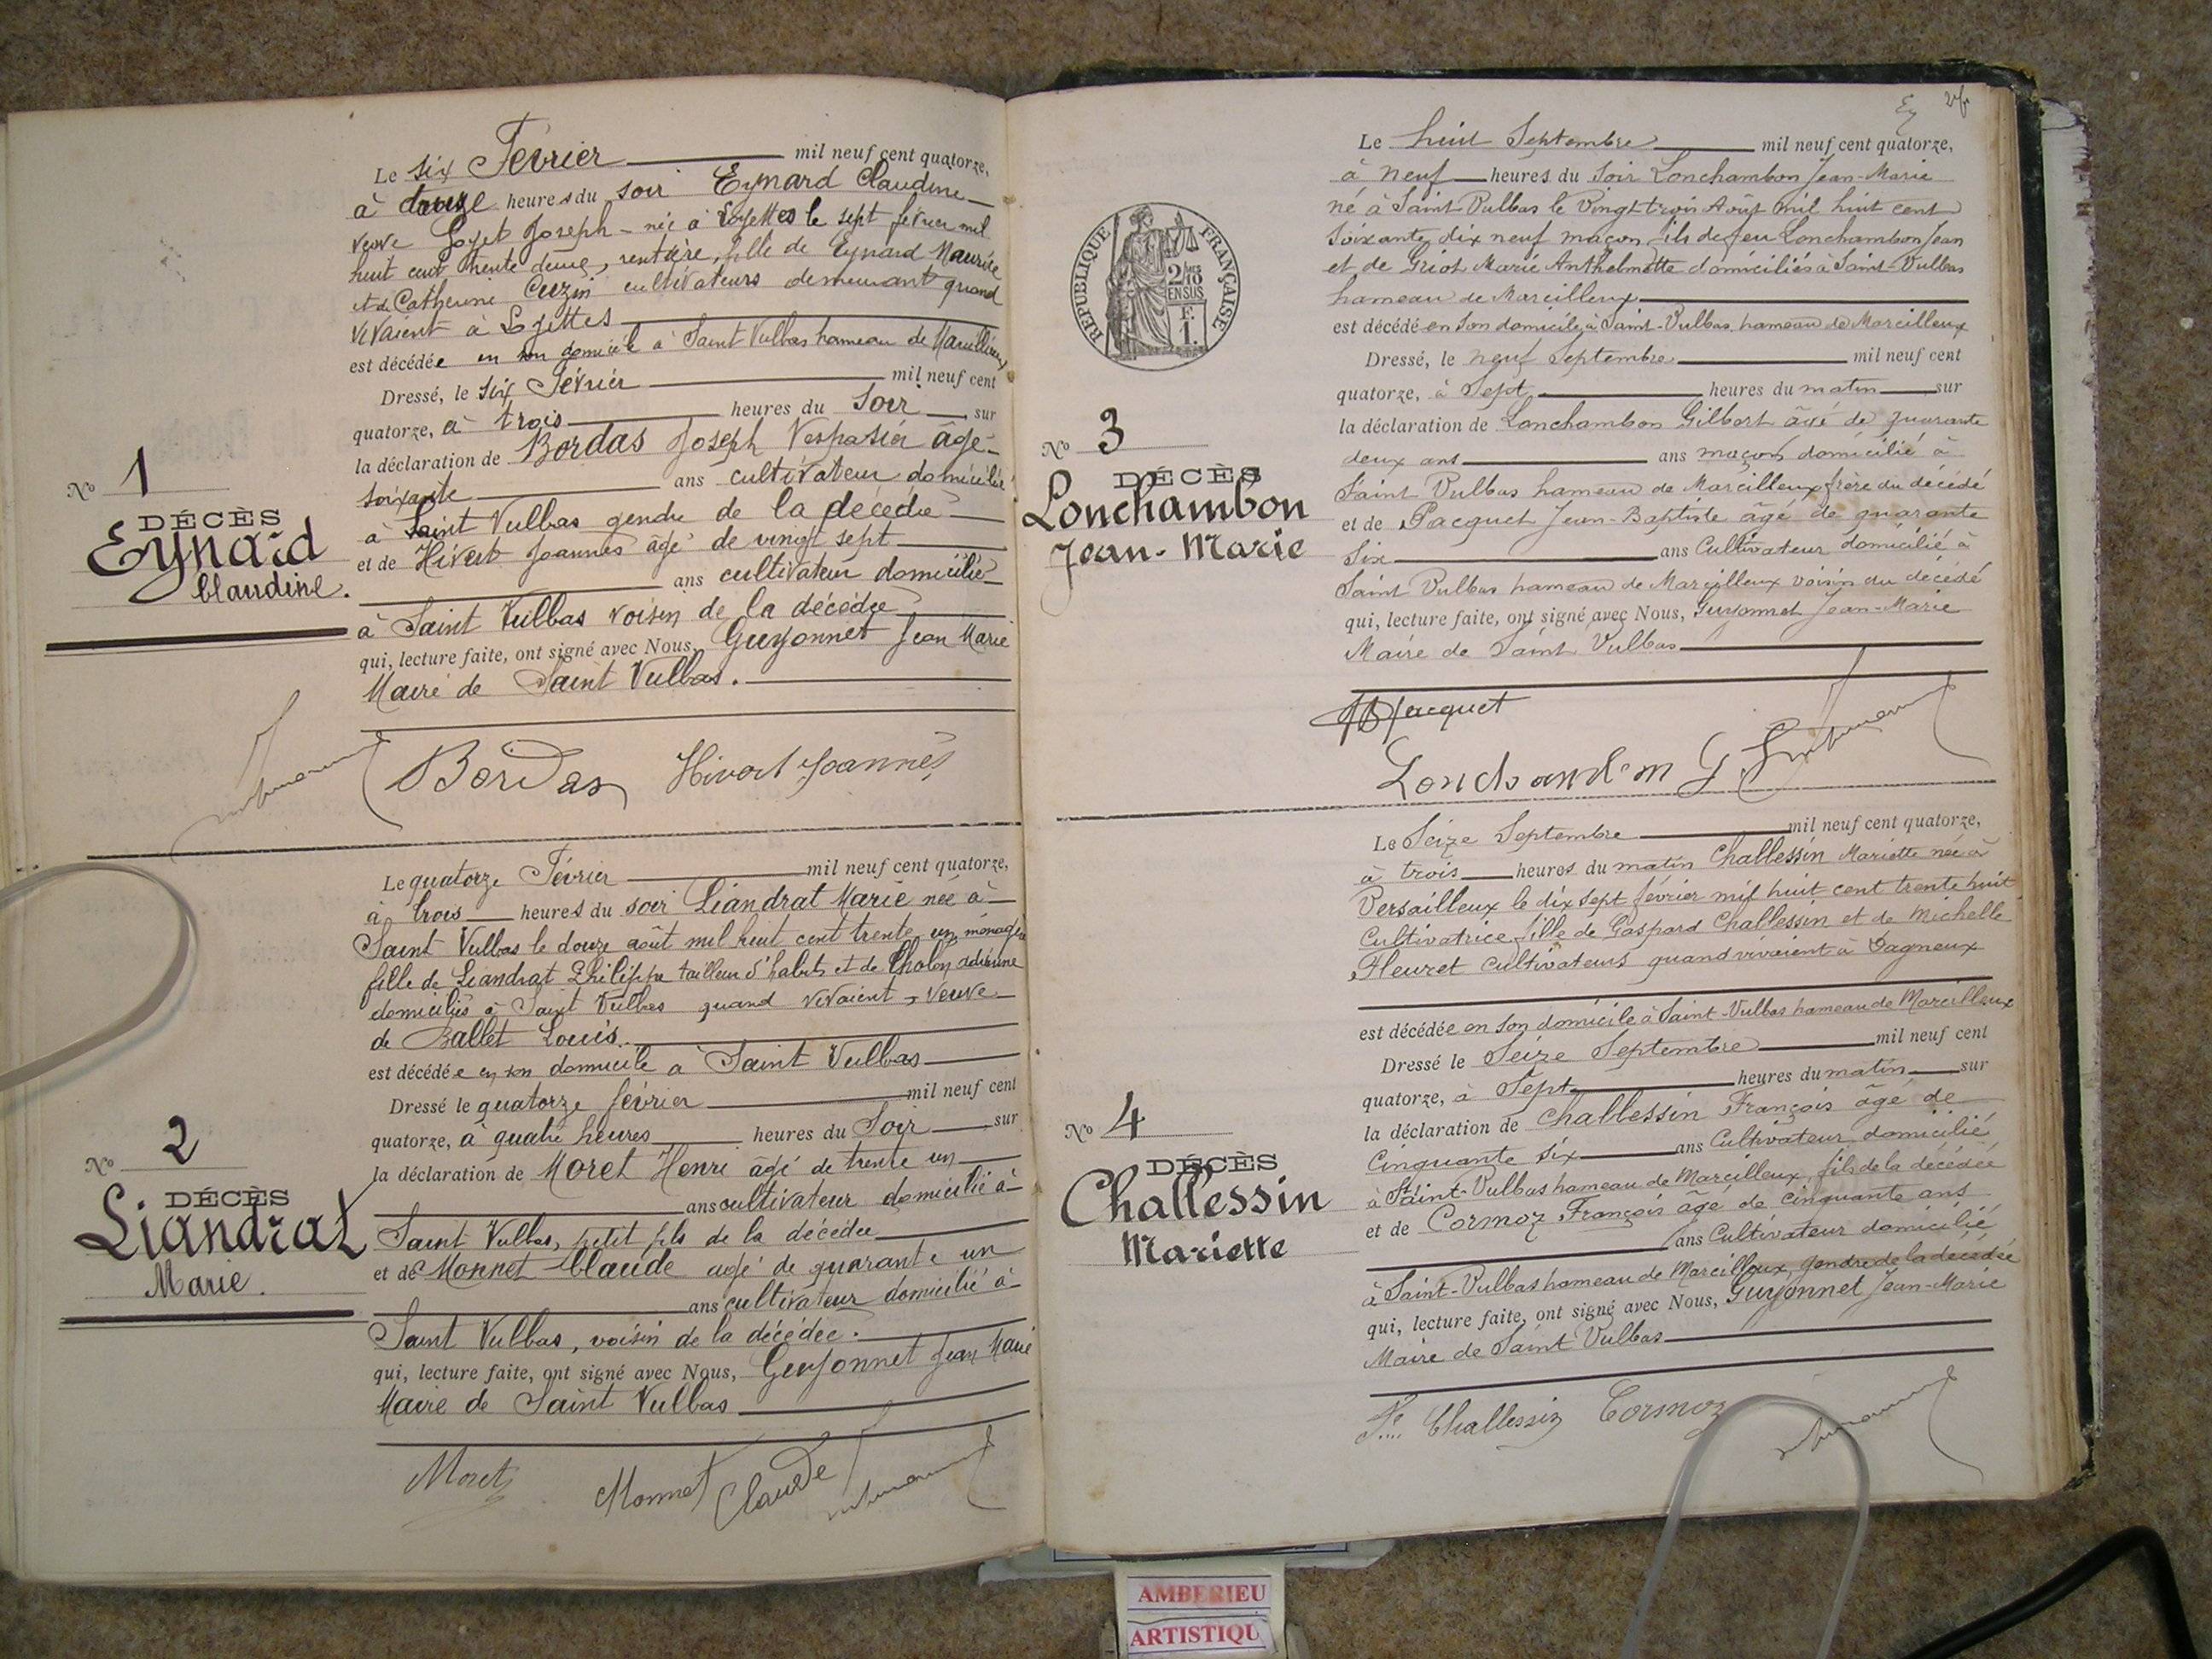 Le six Février mil neuf cent quatorze,
à douze heures du soir Eynard Claudine
veuve Goyet Joseph - née à Loyettes le sept février mil
huit cent trente deux, rentière, fille de Eynard Maurice
et de Catherine Cuzin cultivateurs demeurant quand
vivaient à Loyettes
est décédée en son domicile à Saint Vulbas hameau de Marcilleux
Dressé, le six Février mil neuf cent
quatorze, à trois heures du soir sur
la déclaration de Bordas Joseph Vespasien âgé
soixante ans cultivateur domicilié
à Saint Vulbas gendre de la décédée
et de Hivert Joannès âgé de vingt sept
ans cultivateur domicilié
à Saint Vulbas voisin de la décédée
qui, lecture faite, ont signé avec Nous, Guyonnet Jean Marie
Maire de Saint Vulbas.
No 1
DÉCÈS
Eynard
Claudine.
Bordas Hivert Joannès
Le quatorze Février mil neuf cent quatorze,
à trois heures du soir Liandrat Marie née à
Saint Vulbas le douze août mil huit cent trente un, ménagère
fille de Liandrat Philippe tailleur d'habits et de Cholon adrienne
domiciliés à Saint Vulbas quand vivaient, veuve
de Ballet Louis.
est décédée en son domicile à Saint Vulbas
Dressé le quatorze février mil neuf cent
quatorze, à quatre heures heures du Soir sur
la déclaration de Moret Henri âgé de trente un
ans cultivateur domicilié à
Saint Vulbas, petit fils de la décédée
et de Monnet Claude agé de quarante un
ans cultivateur domicilié à
Saint Vulbas, voisin de la décédée.
qui, lecture faite, ont signé avec Nous, Guyonnet Jean Marie
Maire de Saint Vulbas
No 2
DÉCÈS
Liandrat
Marie.
Moret Monnet Claude
Le huit Septembre mil neuf cent quatorze,
à neuf heures du Soir Lonchambon Jean-Marie
né à Saint Vulbas le Vingt trois Août mil huit cent
soixante dix neuf maçon fils de feu Lonchambon Jean
et de Griot Marie Anthelmette domiciliés à Saint-Vulbas
hameau de Marcilleux
est décédé en son domicile à Saint-Vulbas hameau de Marcilleux
Dressé, le neuf Septembre mil neuf cent
quatorze, à Sept heures du matin sur
la déclaration de Lonchambon Gilbert âgé de quarante
deux ans ans maçon domicilié à
Saint Vulbas hameau de Marcilleux frère du décédé
et de Jacquet Jean-Baptiste âgé de quarante
Six ans Cultivateur domicilié à
Saint Vulbas hameau de Marcilleux voisin du décédé
qui, lecture faite, ont signé avec Nous, Guyonnet Jean-Marie
Maire de Saint Vulbas
RÉPUBLIQUE FRANÇAISE
2/10
EN SUS
F.
1.
No 3
DÉCÈS
Lonchambon
Jean-Marie
JB Jacquet
Lonchambon G
Le Seize Septembre mil neuf cent quatorze,
à trois heures du matin Challessin Mariette née à
Versailleux le dix sept février mil huit cent trente huit
Cultivatrice fille de Gaspard Challessin et de Michelle
Fleuret cultivateurs quand vivaient à Dagneux
est décédée en son domicile à Saint-Vulbas hameau de Marcilleux
Dressé le Seize Septembre mil neuf cent
quatorze, à Sept heures du matin sur
la déclaration de Challessin François âgé de
Cinquante six ans Cultivateur domicilié
à Saint-Vulbas hameau de Marcilleux, fils de la décédée
et de Cormoz François âgé de cinquante ans
ans Cultivateur domicilié
à Saint-Vulbas hameau de Marcilleux, gendre de la décédée
qui, lecture faite, ont signé avec Nous, Guyonnet Jean-Marie
Maire de Saint Vulbas
No 4
DÉCÈS
Challessin
Mariette
Challessin Cormoz
AMBERIEU
ARTISTIQU